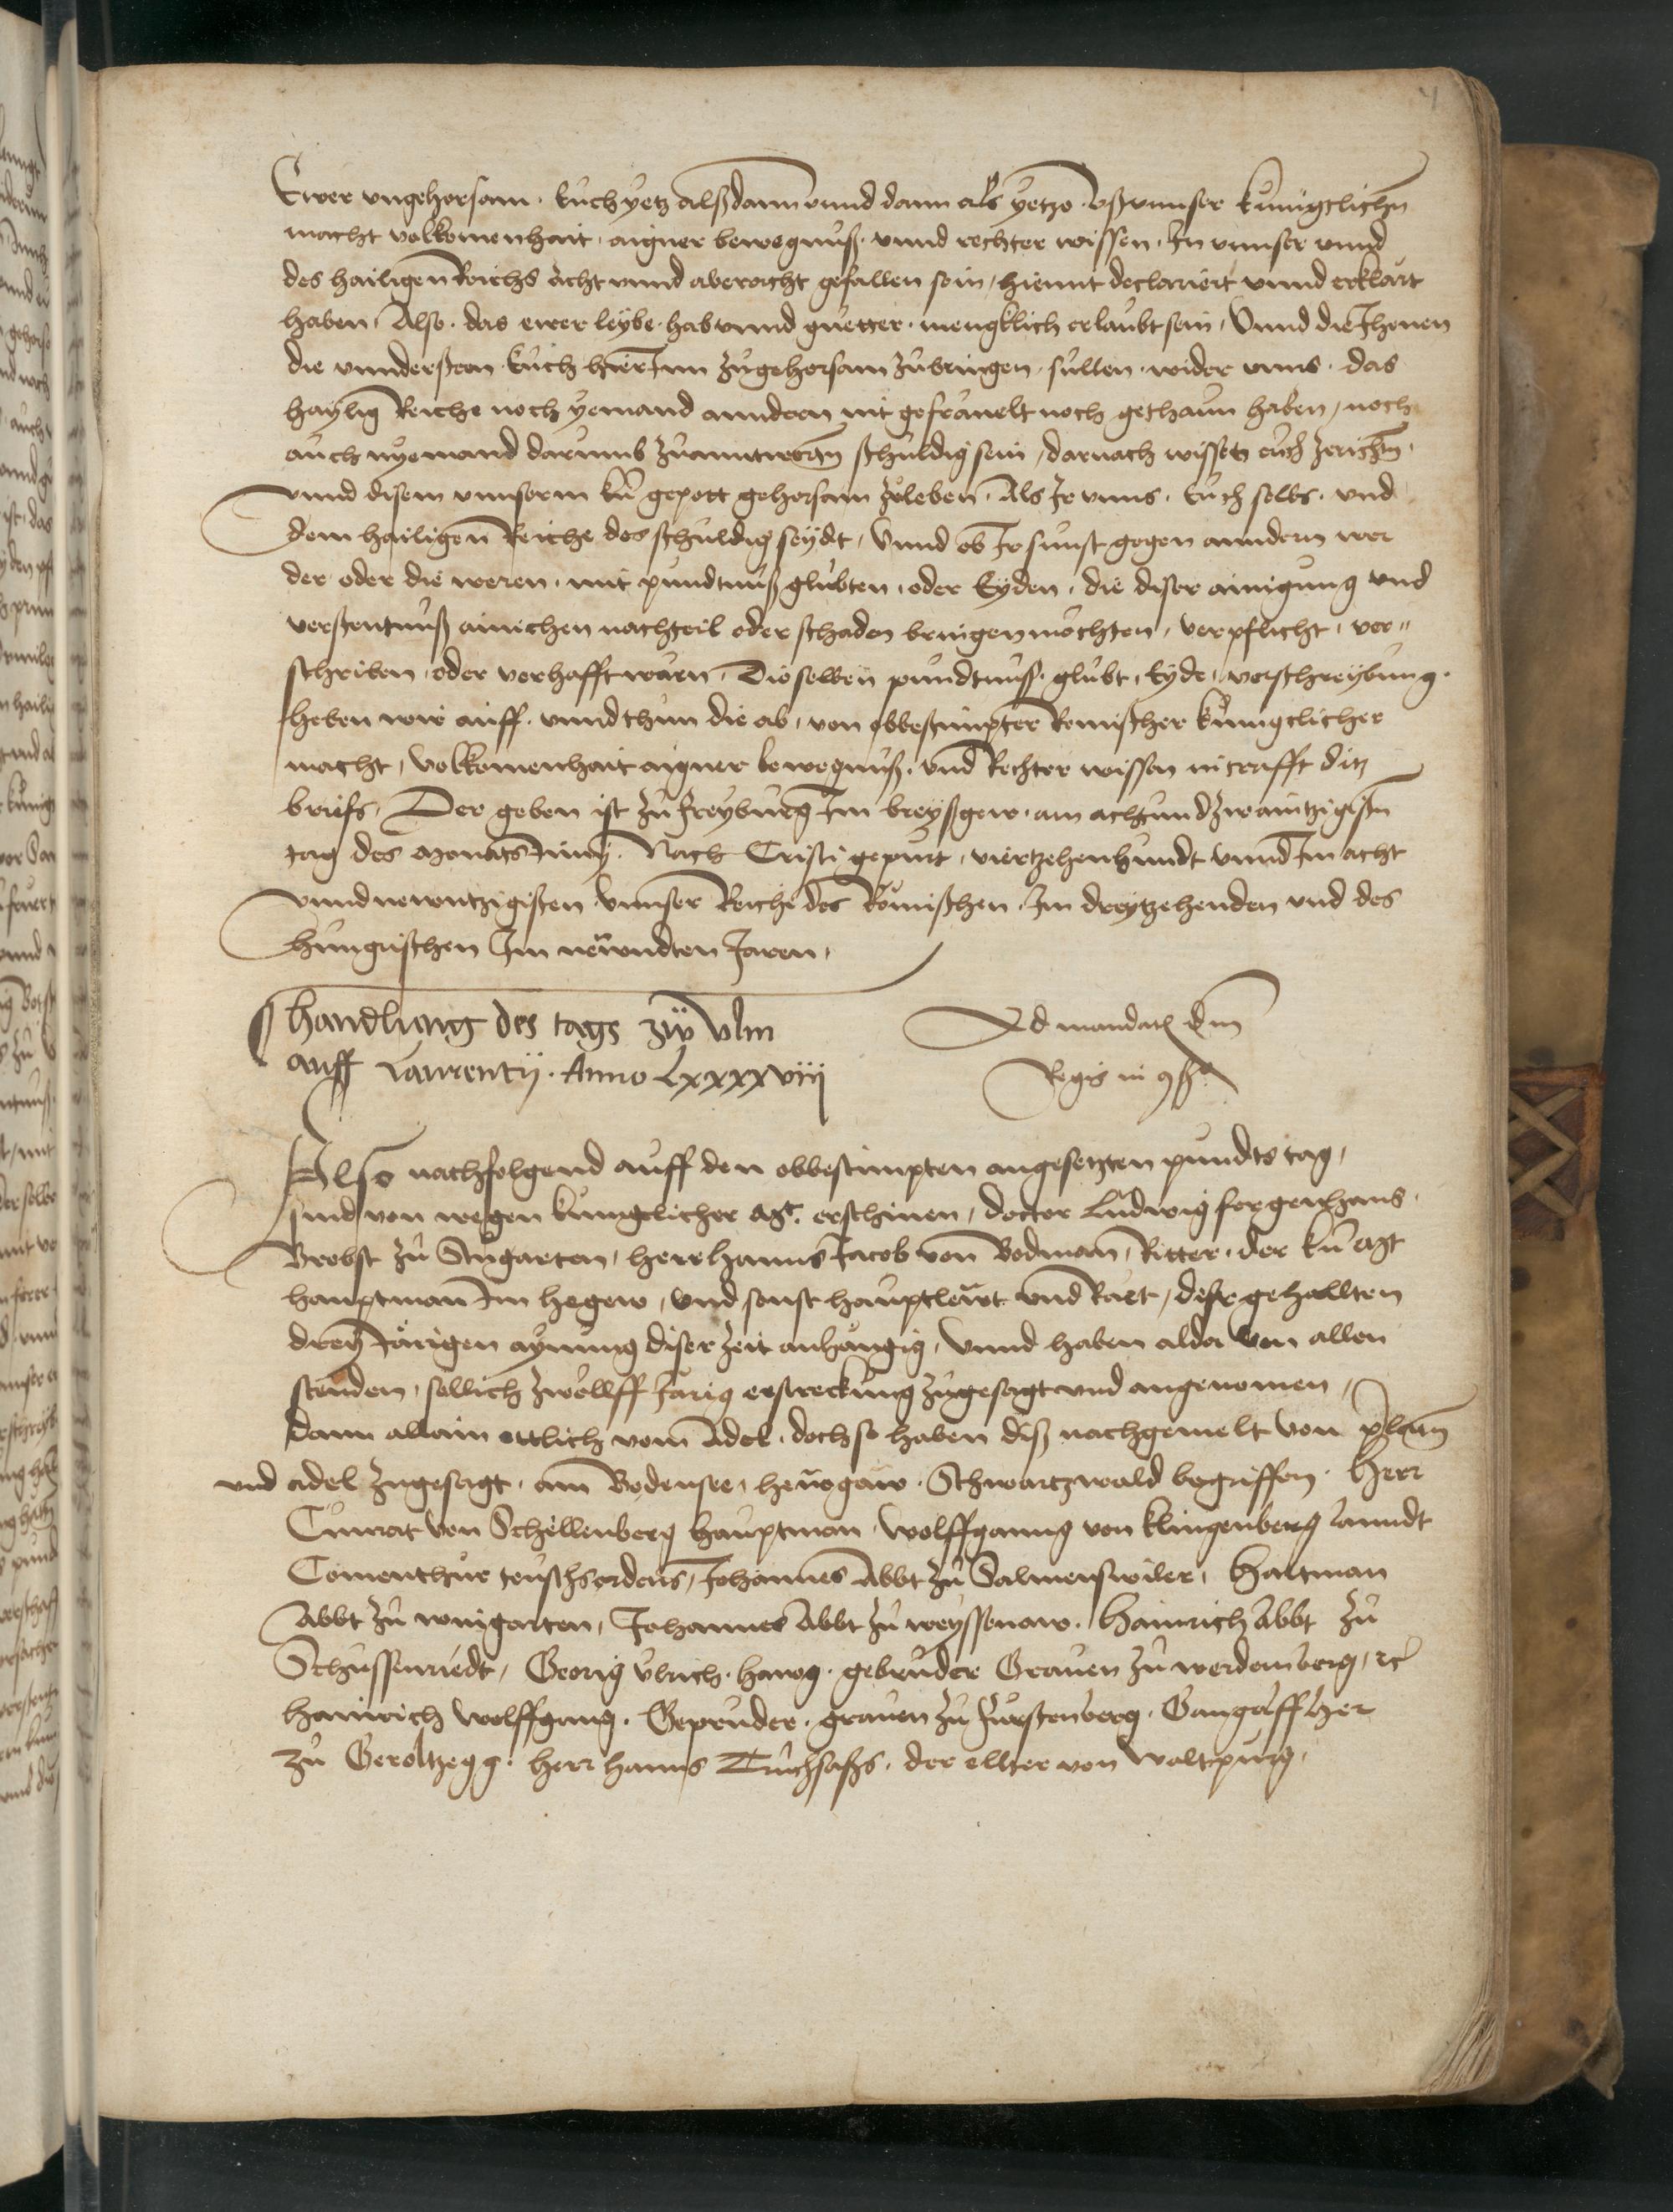 4
Ewer vngehorsam · Euch yetz alßdann vnnd dann als yetzo · vß vnnser kunigclichen
macht volkomenhait · aigner bewegnuß · vnnd rechter wissen · In vnnser vnnd
des hailigen Reichs acht vnnd aberacht gefallen sein / hiemit declariert vnnd erklärt
haben / Also · das ewer leybe · hab vnnd guetter · mengklich erlaubt sein / Vnnd die Jhenen
die vnndersteen Euch hier Inn zugehorsam zubringen · sullen · wider vnns · das
haylig Reiche noch yemand anndern nit gefrauelt noch gethaun haben / noch
auch nyemand darumb zuanntwurten schuldig sein / darnach wisset euch zerichten ·
vnnd disem vnnserm ku gepott gehorsam zuleben · Als Ir vnns · Euch selbs · vnd
dem hailigen Reiche des schuldig seydt / Vnnd ob Ir sunst gegen anndern wer
der oder die weren · mit pundtnuß glubten · oder Eyden · die diser ainigung vnd
verstentnuß ainichen nachteil oder schaden bringen möchten / verpflicht · ver"
schriben / oder verhafft wärn / Dieselben pundtnuß · glubt / Eyde / verschreybung ·
heben wir auff · vnnd thun die ab / von obbestimpter Romischer kunigclicher
macht / Volkomenhait aigner bewegnuß · vnd Rechter wissen in crafft ditz
briefs · Der geben ist zu freyburg Im breyßgew · am achtundzwaintzigisten
tag des Monats Juny · Nach Cristi gepurt / viertzehenhundt vnnd Im acht
vnndnewntzigisten · vnnser Reiche des Römischen · Im dreytzehenden vnd des
Hungrischen Im newndten Jaren /
Handlung des tags zu Vlm
auff Laurentij · Anno Lxxxxviij
Ad mandatum dni
Regis in 9ß°
Also nachfolgend auff den obbestimpten angesetzten pundts tag /
sind von wegen kungclicher Mt. erschinen / doctor Ludwig fergenhans ·
Brobst zu Stugarten / Herr Hanns Jacob von Bodman / Ritter · der ku Mt
hauptman Im Hegew / vnd sonst hauptlewt vnd Rät / diser gehallten
drey Järigen aynung diser zeit anhängig / Vnnd haben alda von allen
stenden / sollich zwölff Järig erstreckung zugesagt vnd angenomen /
dann allain ettlich vom Adel · doch so haben diß nachgemelt von prelaten
vnd adel zugesagt · am Bodensee / Hewgaw · Schwartzwald begriffen · Herr
Cunrat von Schellenberg hauptman / Wolffganng von Klingenberg Lanndt
Comenthur teutschs ordens / Johannes Abbt zu Salmenswiler / Hartman
Abbt zu wingarten / Johannes Abbt zu weyssenaw · Hainrich Abbt zu
Schussenriedt / Georig Vlrich · Hawg · gebruder Grauen zu werdemberg / etc
Hainrich Wolffgang · Gepruder · grauen zu Fürstenberg · Gangolff Her
zu Geroltzegg · Herr Hanns Truchsäßs · der ellter von waltpurg /